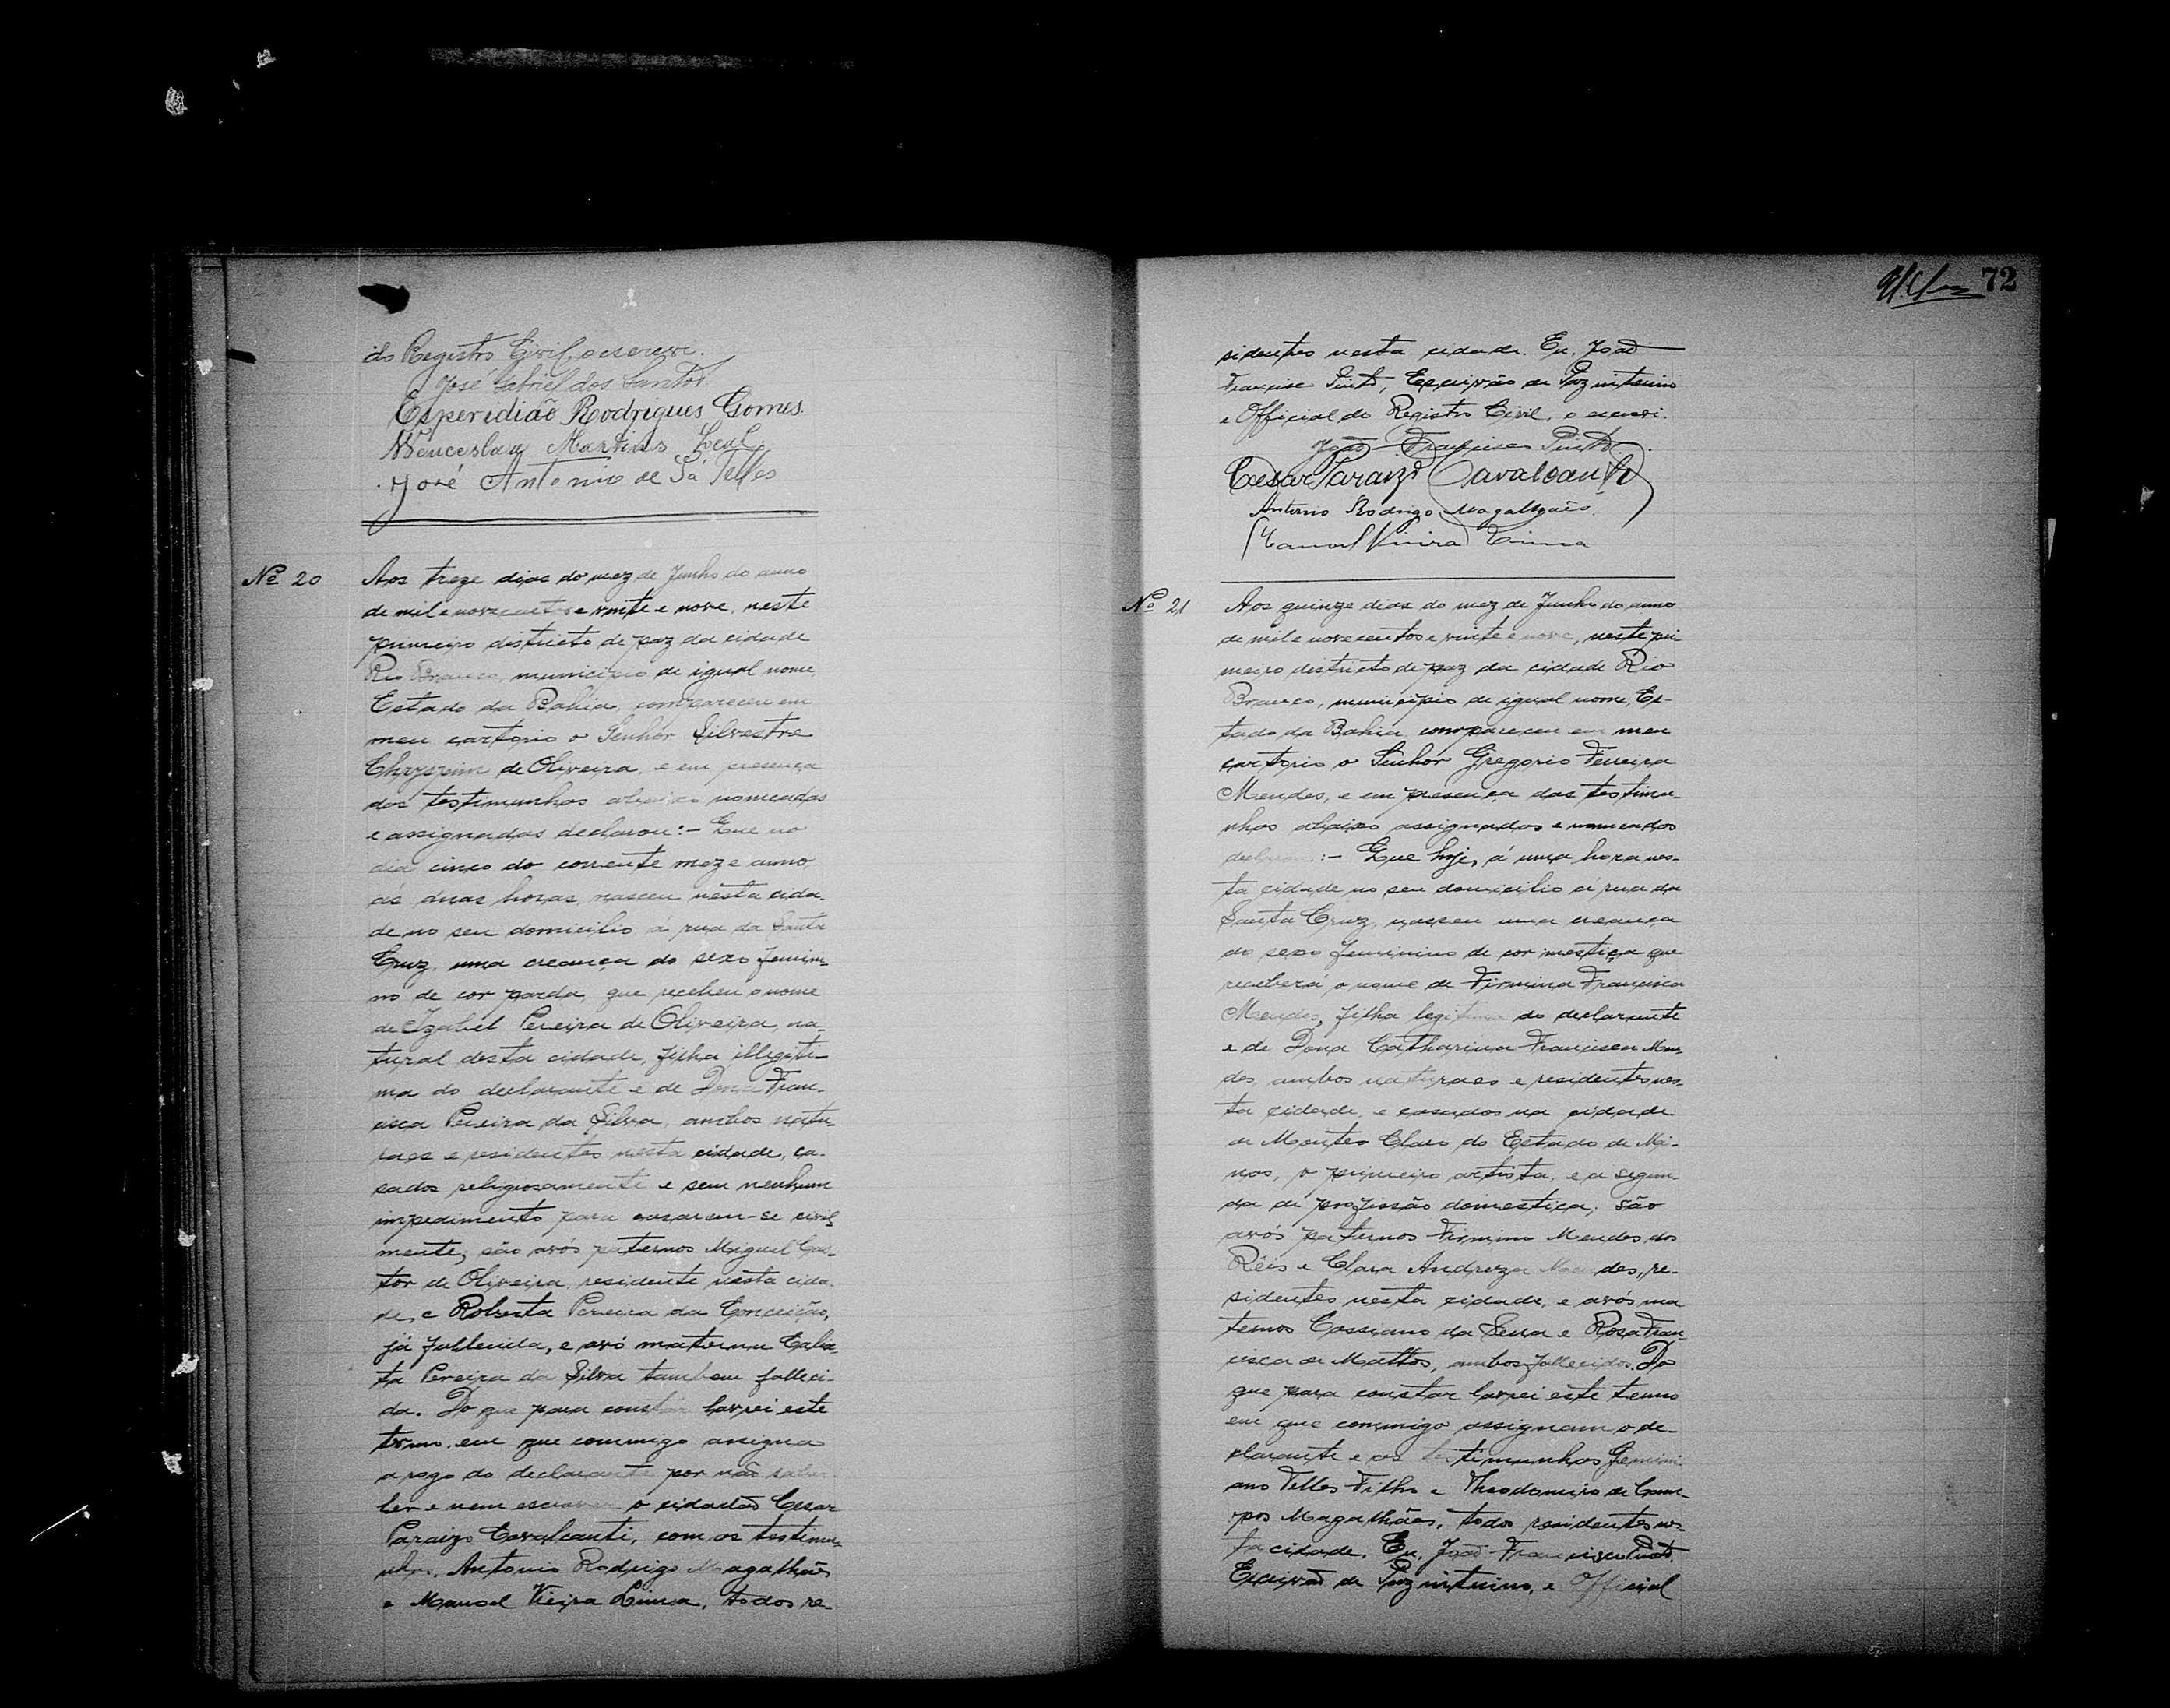 do Registro Civil, o escrevi.
José Gabriel dos Santos.
Esperedião Rodrigues Gomes.
Wenceslau Martins Leal.
José Antonio de Sá Telles
Nº 20
Aos treze dias do mez de Junho do anno
de mil e novecentos e vinte e nove, neste
primeiro districto de paz da cidade
Rio Branco, municipio de igual nome,
Estado da Bahia, compareceu em
meu cartorio o Senhor Silvestre
Chryspim de Oliveira, e em presença
das testimunhas abaixo nomeadas
e assignadas declarou:- Que no
dia cinco do corrente mez e anno
ás duas horas, nasceu nésta cida-
de no seu domicilio á rua da Santa
Cruz, uma creança do sexo femini-
no de cor parda, que recebeu o nome
de Izabel Pereira de Oliveira, na-
tural desta cidade, filha illegiti-
ma do declarante e de Dona Fran-
cisca Pereira da Silva, ambos natu-
raes e residentes nesta cidade, ca-
sados religiosamente e sem nenhum
impedimento para casarem-se civil-
mente; são avós paternos Miguel Cas-
tor de Oliveira, residente nésta cida-
de, e Roberta Pereira da Conceição,
já fallecida, e avó materna
Pereira da Silva tambem falleci-
da. Do que para constar lavrei este
termo, em que commigo assigna
a rogo do declarante por não saber
ler e nem escrever o cidadão Cesar
Paraizo Cavalcanti, com as testimu-
nhas, Antonio Rodrigo Magalhães
e Manoel Vieira Lima, todos re-
72
sidentes nesta cidade. Eu, João
Francisco Pinto, Escrivão de Paz interino
e Official do Registro Civil, o escrevi.
João Francisco Pinto.
Cesar Paraizo Cavalcanti
Antonio Rodrigo Magalhães.
Manoel Vieira Lima
Nº 21
Aos quinze dias do mez de Junho do anno
de mil e novecentos e vinte e nove, neste pri
meiro districto de paz da cidade Rio
Branco, municipio de igual nome, Es-
tado da Bahia, compareceu em meu
cartorio o Senhor Gregorio Ferreira
Mendes, e em presença das testimu-
nhas abaixo assignados e nomeados
declarou:- Que hoje, á uma hora nes-
ta cidade no seu domicilio á rua da
Santa Cruz, nasceu uma creança
do sexo feminino de cor mestiça que
receberá o nome de Firmina Francisca
Mendes, filha legitima do declarante
e de Dona Catharina Francisca Men-
des, ambos naturaes e residentes nes-
ta cidade, e casados na cidade
de Montes Claro do Estado de Mi-
nas, o primeiro artista, e a segun-
da de profissão domestica; são
avós paternos Firmino Mendes dos
Réis e Clara Andreza Mendes, re-
sidentes nesta cidade, e avós ma
ternos Cassiano da Serra e Rosa Fran-
cisca de Mattos, ambos fallecidos. Do
que para constar lavrei éste termo
em que commigo assignam o de-
clarante e as testimunhas Gemini
ano Telles Filho e Theodomiro de Cam-
pos Magalhães, todos residentes nes-
ta cidade. Eu, João Francisco Pinto,
Escrivão de Paz interino, e Official